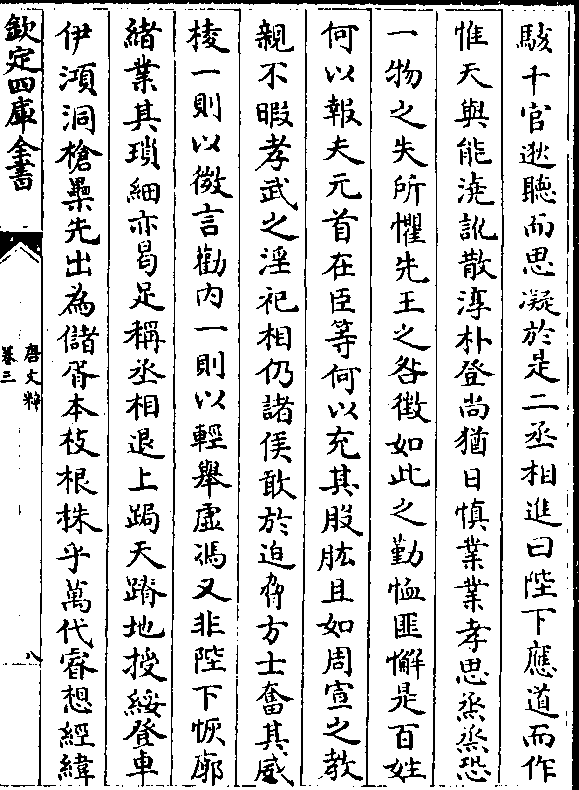 駭千官逖聽而思凝於是二丞相進曰陛下應道而作
惟天與能澆訛散淳朴登尚猶日慎業業孝思烝烝恐
一物之失所懼先王之咎徵如此之勤恤匪懈是百姓
何以報夫元首在臣等何以充其股肱且如周宣之教
親不暇孝武之淫祀相仍諸侯敢於迫脅方士奮其威
棱一則以微言勸内一則以輕舉虛馮又非陛下恢廓
緒業其瑣細亦曷足稱丞相退上跼天蹐地授綏登車
伊澒洞槍櫐先出為儲胥本枝根株乎萬代睿想經緯
欽定四庫全書
唐文粹
卷三
八